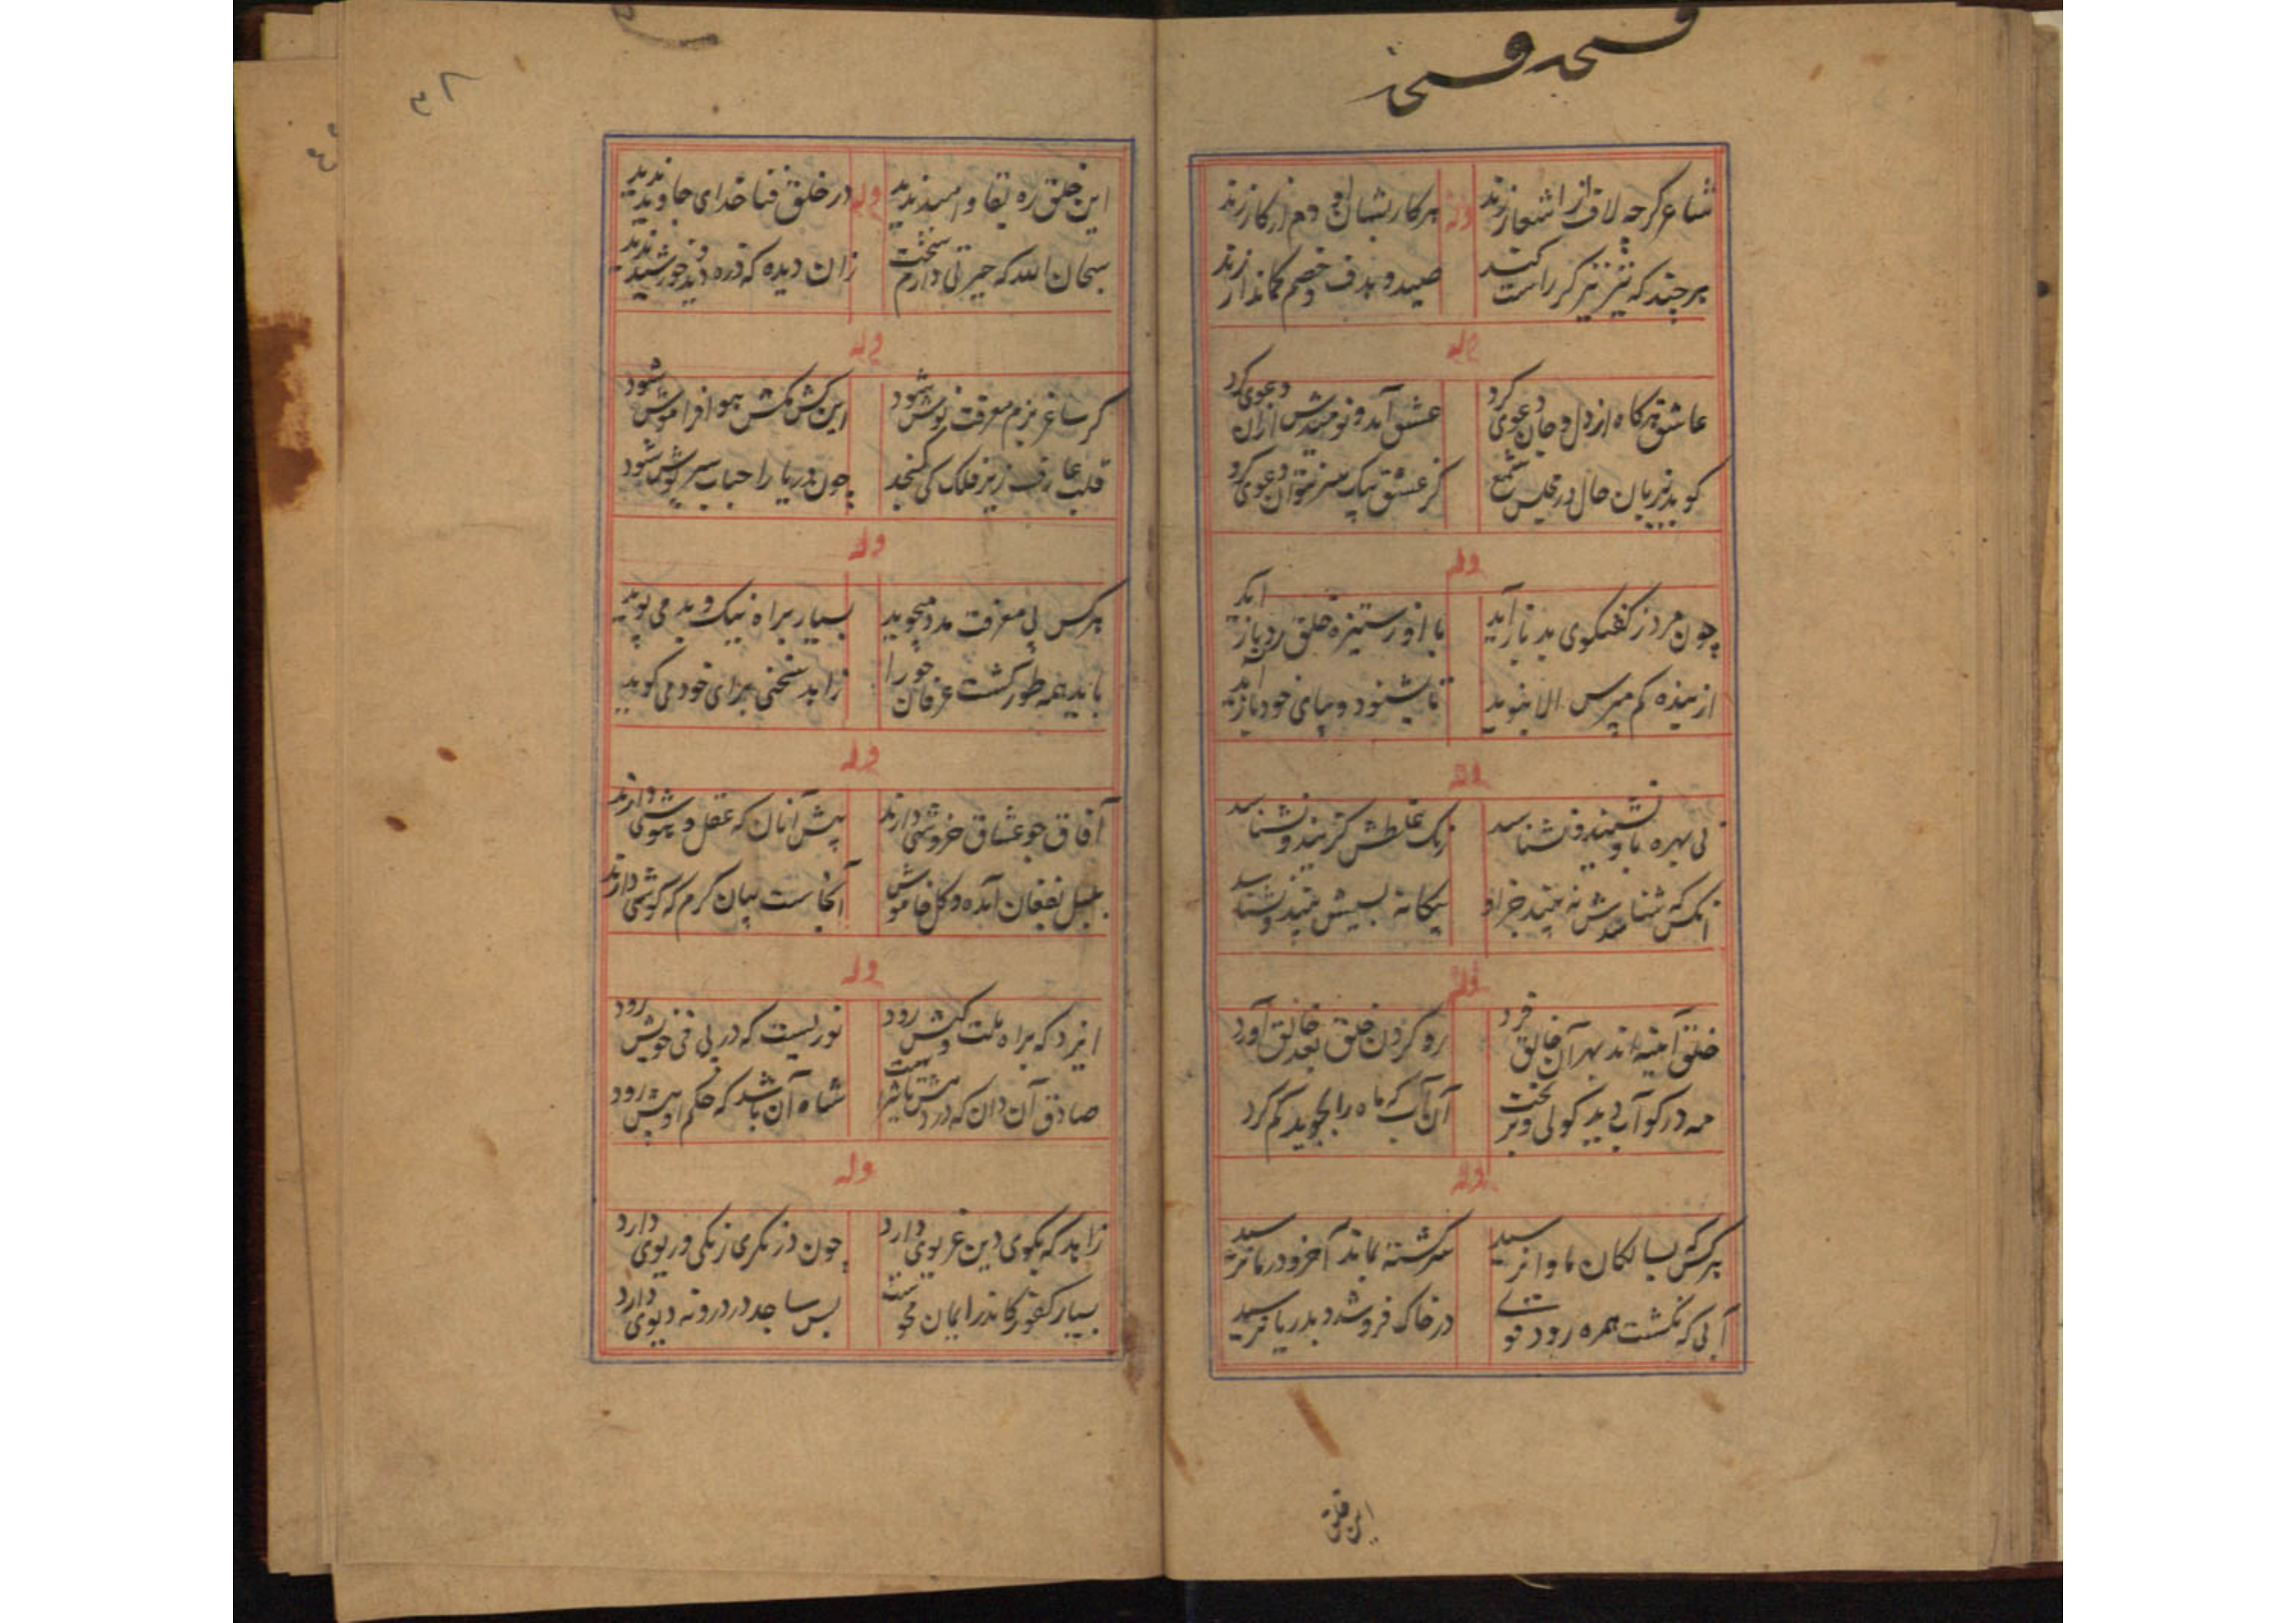 شاعر کرچه لاف از اشعار زند
هر کار بشبان او دم از کار زند
هر چند که تیز تیز کر راست کند
صید و هدف و خصم کماندار زند
وله
عاشق هرکاه از دل و جان دعوی کرد
عشق آمد و نومیدش ازان دعوی کرد
کوید بزبان حال در مجلس شمع
کز عشق بیک سر نتوان دعوی کرد
وله
چون مرد ز کفتکوی بد باز آید
با او ز ستیزه خلق رد باز آید
از میذه کم مپرس الا بنوید
تا بشنود و بپای خود باز آید
وله
بی بهره باو نشیند و نشناسد
زنک غلطش کزیند و نشناسد
آنکس که شناسدش نه بیند جز او
بیکانه بسیش بیند و نشناسد
وله
خلق آینه اند بهر آن خالق فرد
رو کردن خلق بعد خالق آورد
مه در کو آبی دید کولی و بریخت
آن آب که ماه را بجوید کم کرد
وله
هرکس که بسالکان ماوا نرسید
سرکشته بماند آخر و درما نرسید
آبی که نکشت همره رود قوی
در خاک فرو شد و بدریا نرسید
این خلق
۳۸
این خلق ره بقا و امید ندید
وله
در خلق فنا خدای جاوید ندید
سبحان الله که حیرتی دارم سخت
زان دیده که ذره دید و خورشید ندید
وله
کر ساغر بزم معرفت نوش شود
این کش مکش هوا فراموش شود
قلب عارف زیر فلک کی کنجد
چون دریا را حباب سرپوش شود
وله
هرکس پی معرفت مدد میجوید
بسیار براه نیک و بد می پوید
باید همه طور کشت عرفان جو را
زاهد سخنی برای خود می کوید
وله
آفاق چو عشاق خروشی دارند
پیش آنان که عقل و هوشی دارند
بلبل بفغان آمده و کل خاموش
آنجاست بیان کرم که کوشی دارند
وله
ایزد که براه ملت و کیش رود
نوریست که در پی فی خویش رود
صادق آن دان که در دمش تاثیر است
شاه آن باشد که حکم او پیش رود
وله
زاهد که بکوی دین غریوی دارد
چون در نکری زنکی و ریوی دارد
بسیار کفور کاندر ایمان محوست
بس ساجد در درونه دیوی دارد